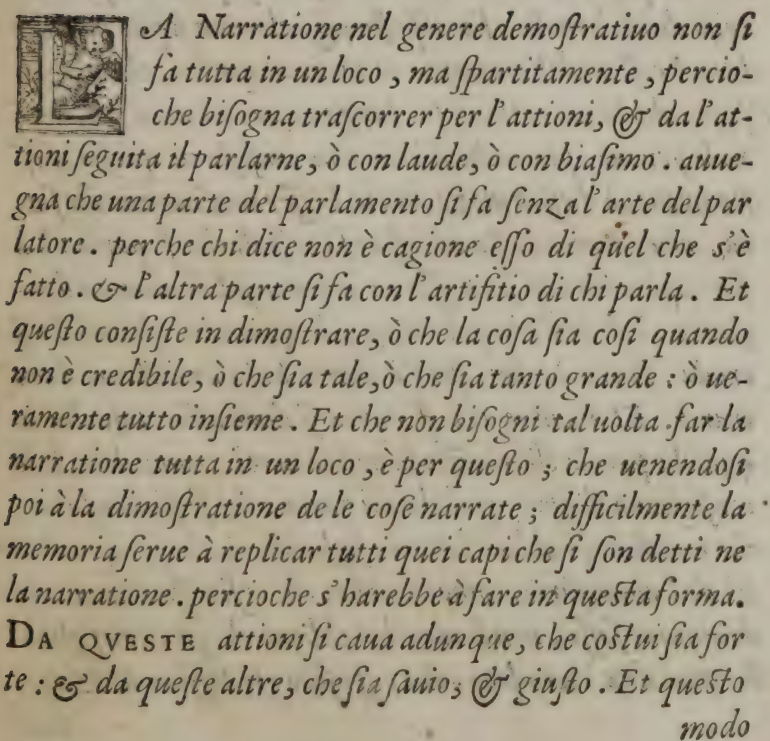 LA Narratione nel genere demoſtratiuo non ſi
fa tutta in un loco, ma ſpartitamente, percio-
che biſogna traſcorrer per l'attioni, & da l'at-
tioni ſeguita il parlarne, ò con laude, ò con biaſimo. auue-
gna che una parte del parlamento ſi fa ſenza l'arte del par
latore. perche chi dice non è cagione eſſo di quel che s'è
fatto. & l'altra parte ſi fa con l'artifitio di chi parla. Et
queſto conſiſte in dimoſtrare, ò che la coſa ſia coſi quando
non è credibile, ò che ſia tale, ò che ſia tanto grande: ò ue-
ramente tutto inſieme. Et che non biſogni tal uolta far la
narratione tutta in un loco, è per queſto; che uenendoſi
poi à la dimoſtratione de le coſe narrate; difficilmente la
memoria ſerue à replicar tutti quei capi che ſi ſon detti ne
la narratione. percioche s'harebbe à fare in queſta forma.
DA QVESTE attioni ſi caua adunque, che coſtui ſia for
te: & da queſte altre, che ſia ſauio; & giuſto. Et queſto
modo